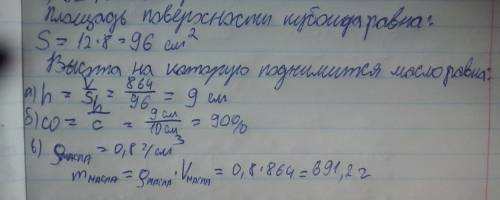 Площадь поверхности кубоида равна:
S = 12·8 = 96 см²
Высота на которую поднимится масло равна:
а) h = V/S = 864/96 = 9 см
б) ω = h/c = 9 см/10 см = 90%
в) ρмасла = 0,8 г/см³
mмасла = ρмасла · Vмасла = 0,8·864 = 691,2 г